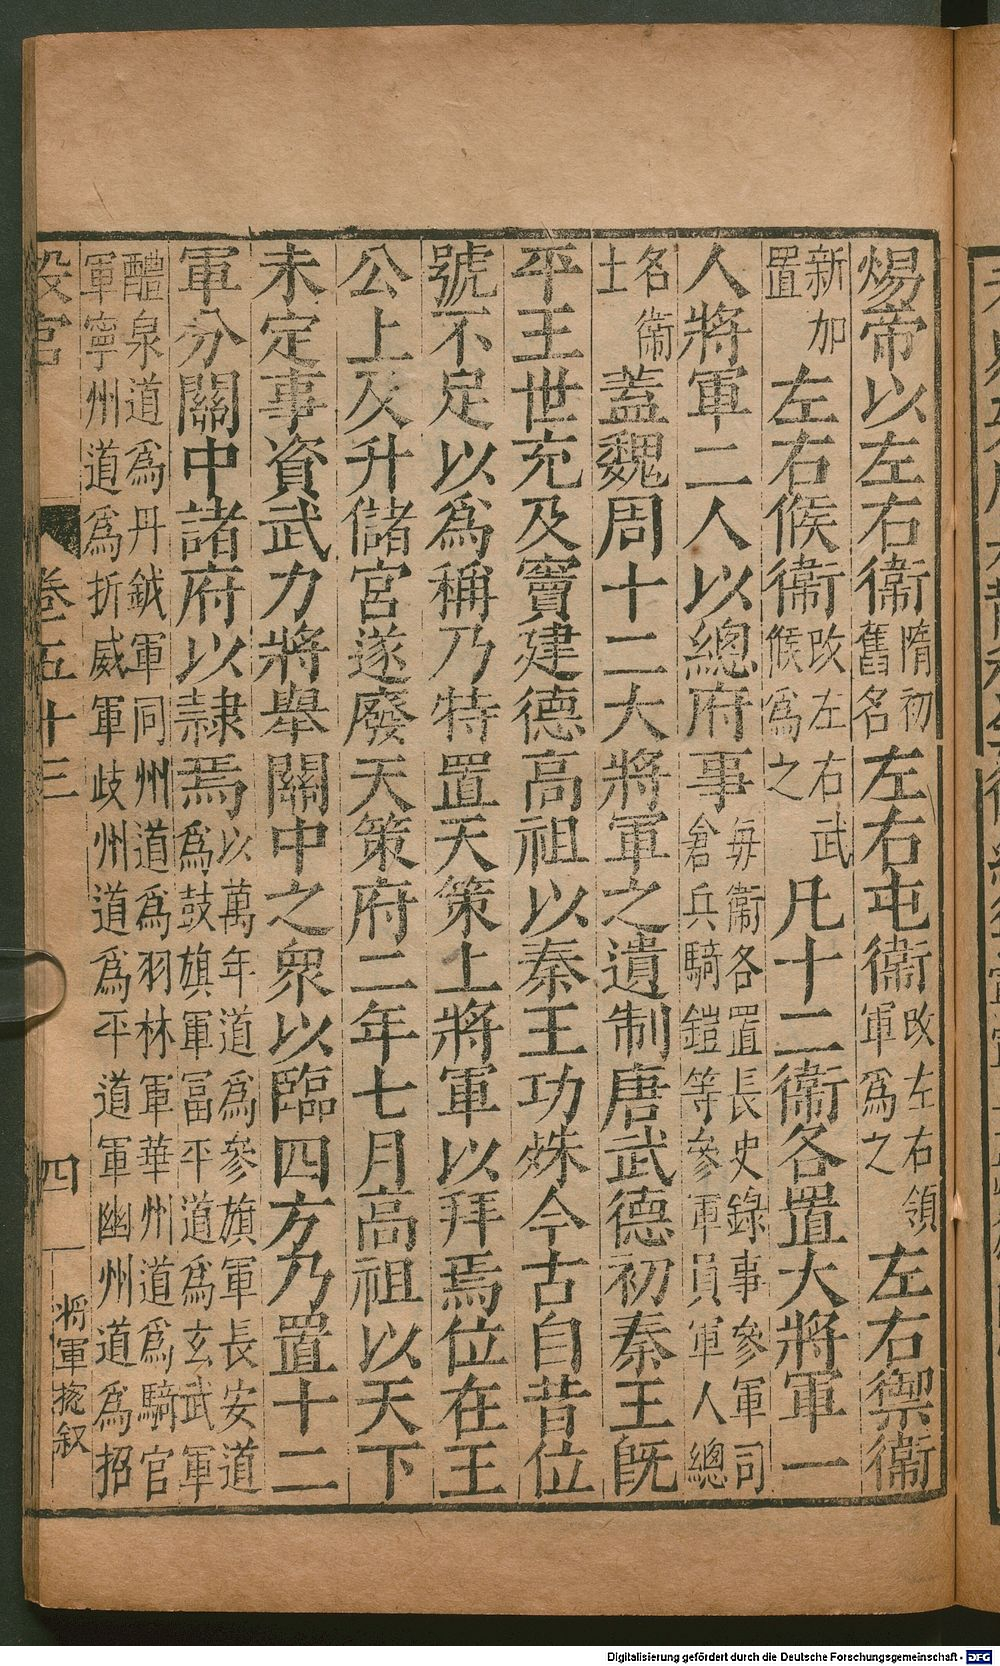 煬帝以左右衛隋初舊名左右屯衛改左右領軍爲之左右禦衛
新加置左右候衛改左右武候爲之凡十二衛各置大將軍一
人將軍二人以總府事毎衛各置長史錄事參軍司倉兵騎鎧等參軍員軍人總
名衛士蓋魏周十二大將軍之遺制唐武德初秦王旣
平王世充及竇建德高祖以秦王功殊今古自昔位
號不足以爲稱乃特置天策上將軍以拜焉位在王
公上及升儲宮遂廢天策府二年七月高祖以天下
未定事資武力將舉關中之衆以臨四方乃置十二
軍分關中諸府以隷焉以萬年道爲參旗軍長安道爲鼓旗軍富平道爲玄武軍
醴泉道爲丹鉞軍同州道爲羽林軍華州道爲騎官軍寧州道爲折威軍歧州道爲平道軍豳州道爲招
卷五十三 四 將軍捴叙
Digitalisierung gefördert durch die Deutsche Forschungsgemeinschaft - DFG